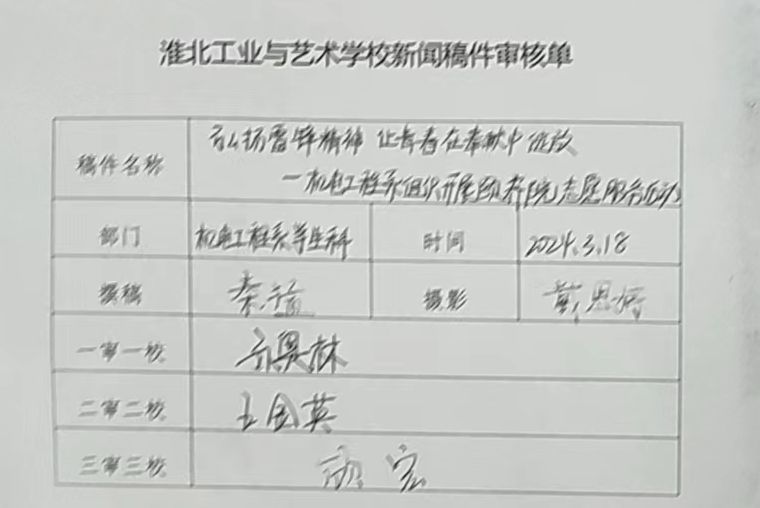 淮北工业与艺术学校新闻稿件审核单
稿件名称
弘扬雷锋精神 让青春在奉献中绽放
—机电工程系组织开展敬养院志愿服务活动
部门 机电工程系学生科 时间 2024.3.18
撰稿 摄影
一审一校
二审二校 王国英
三审三校